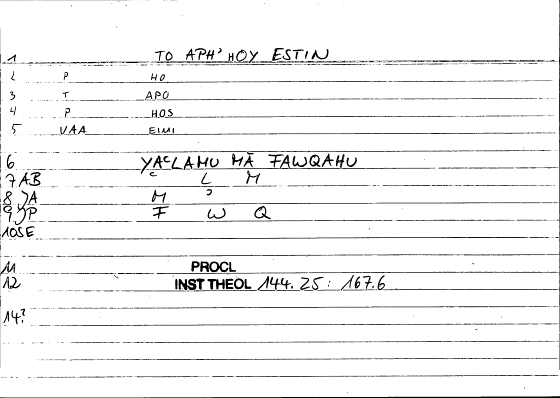 1 TO APH' HOY ESTIN
2 P HO
3 T APO
4 P HOS
5 VAA EIMI
6 YAᶜLAMU MĀ FAWQAHU
7 AB ᶜ L M
8 )A M ᵓ
9 )P F W Q
10SE
11 PROCL
12 INST THEOL 144.25: 167.6
14?